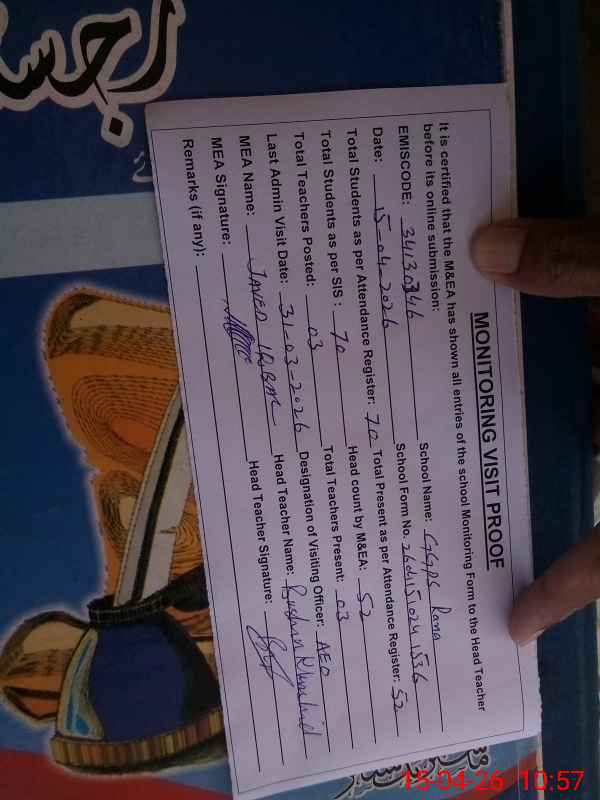 رجس
MONITORING VISIT PROOF
It is certified that the M&EA has shown all entries of the school Monitoring Form to the Head Teacher
before its online submission:
EMISCODE: 34130346 School Name: GGPS Rana
Date: 15-04-2026 School Form No. 2604151024 1536
Total Students as per Attendance Register: 70 Total Present as per Attendance Register: 52
Total Students as per SIS : 70 Head count by M&EA: 52
Total Teachers Posted: 03 Total Teachers Present: 03
Last Admin Visit Date: 31-03-2026 Designation of Visiting Officer: AEO
MEA Name: JAVED IQBAL Head Teacher Name: Bushra Khurshid
MEA Signature: Head Teacher Signature:
Remarks (if any):
15-04-26 10:57